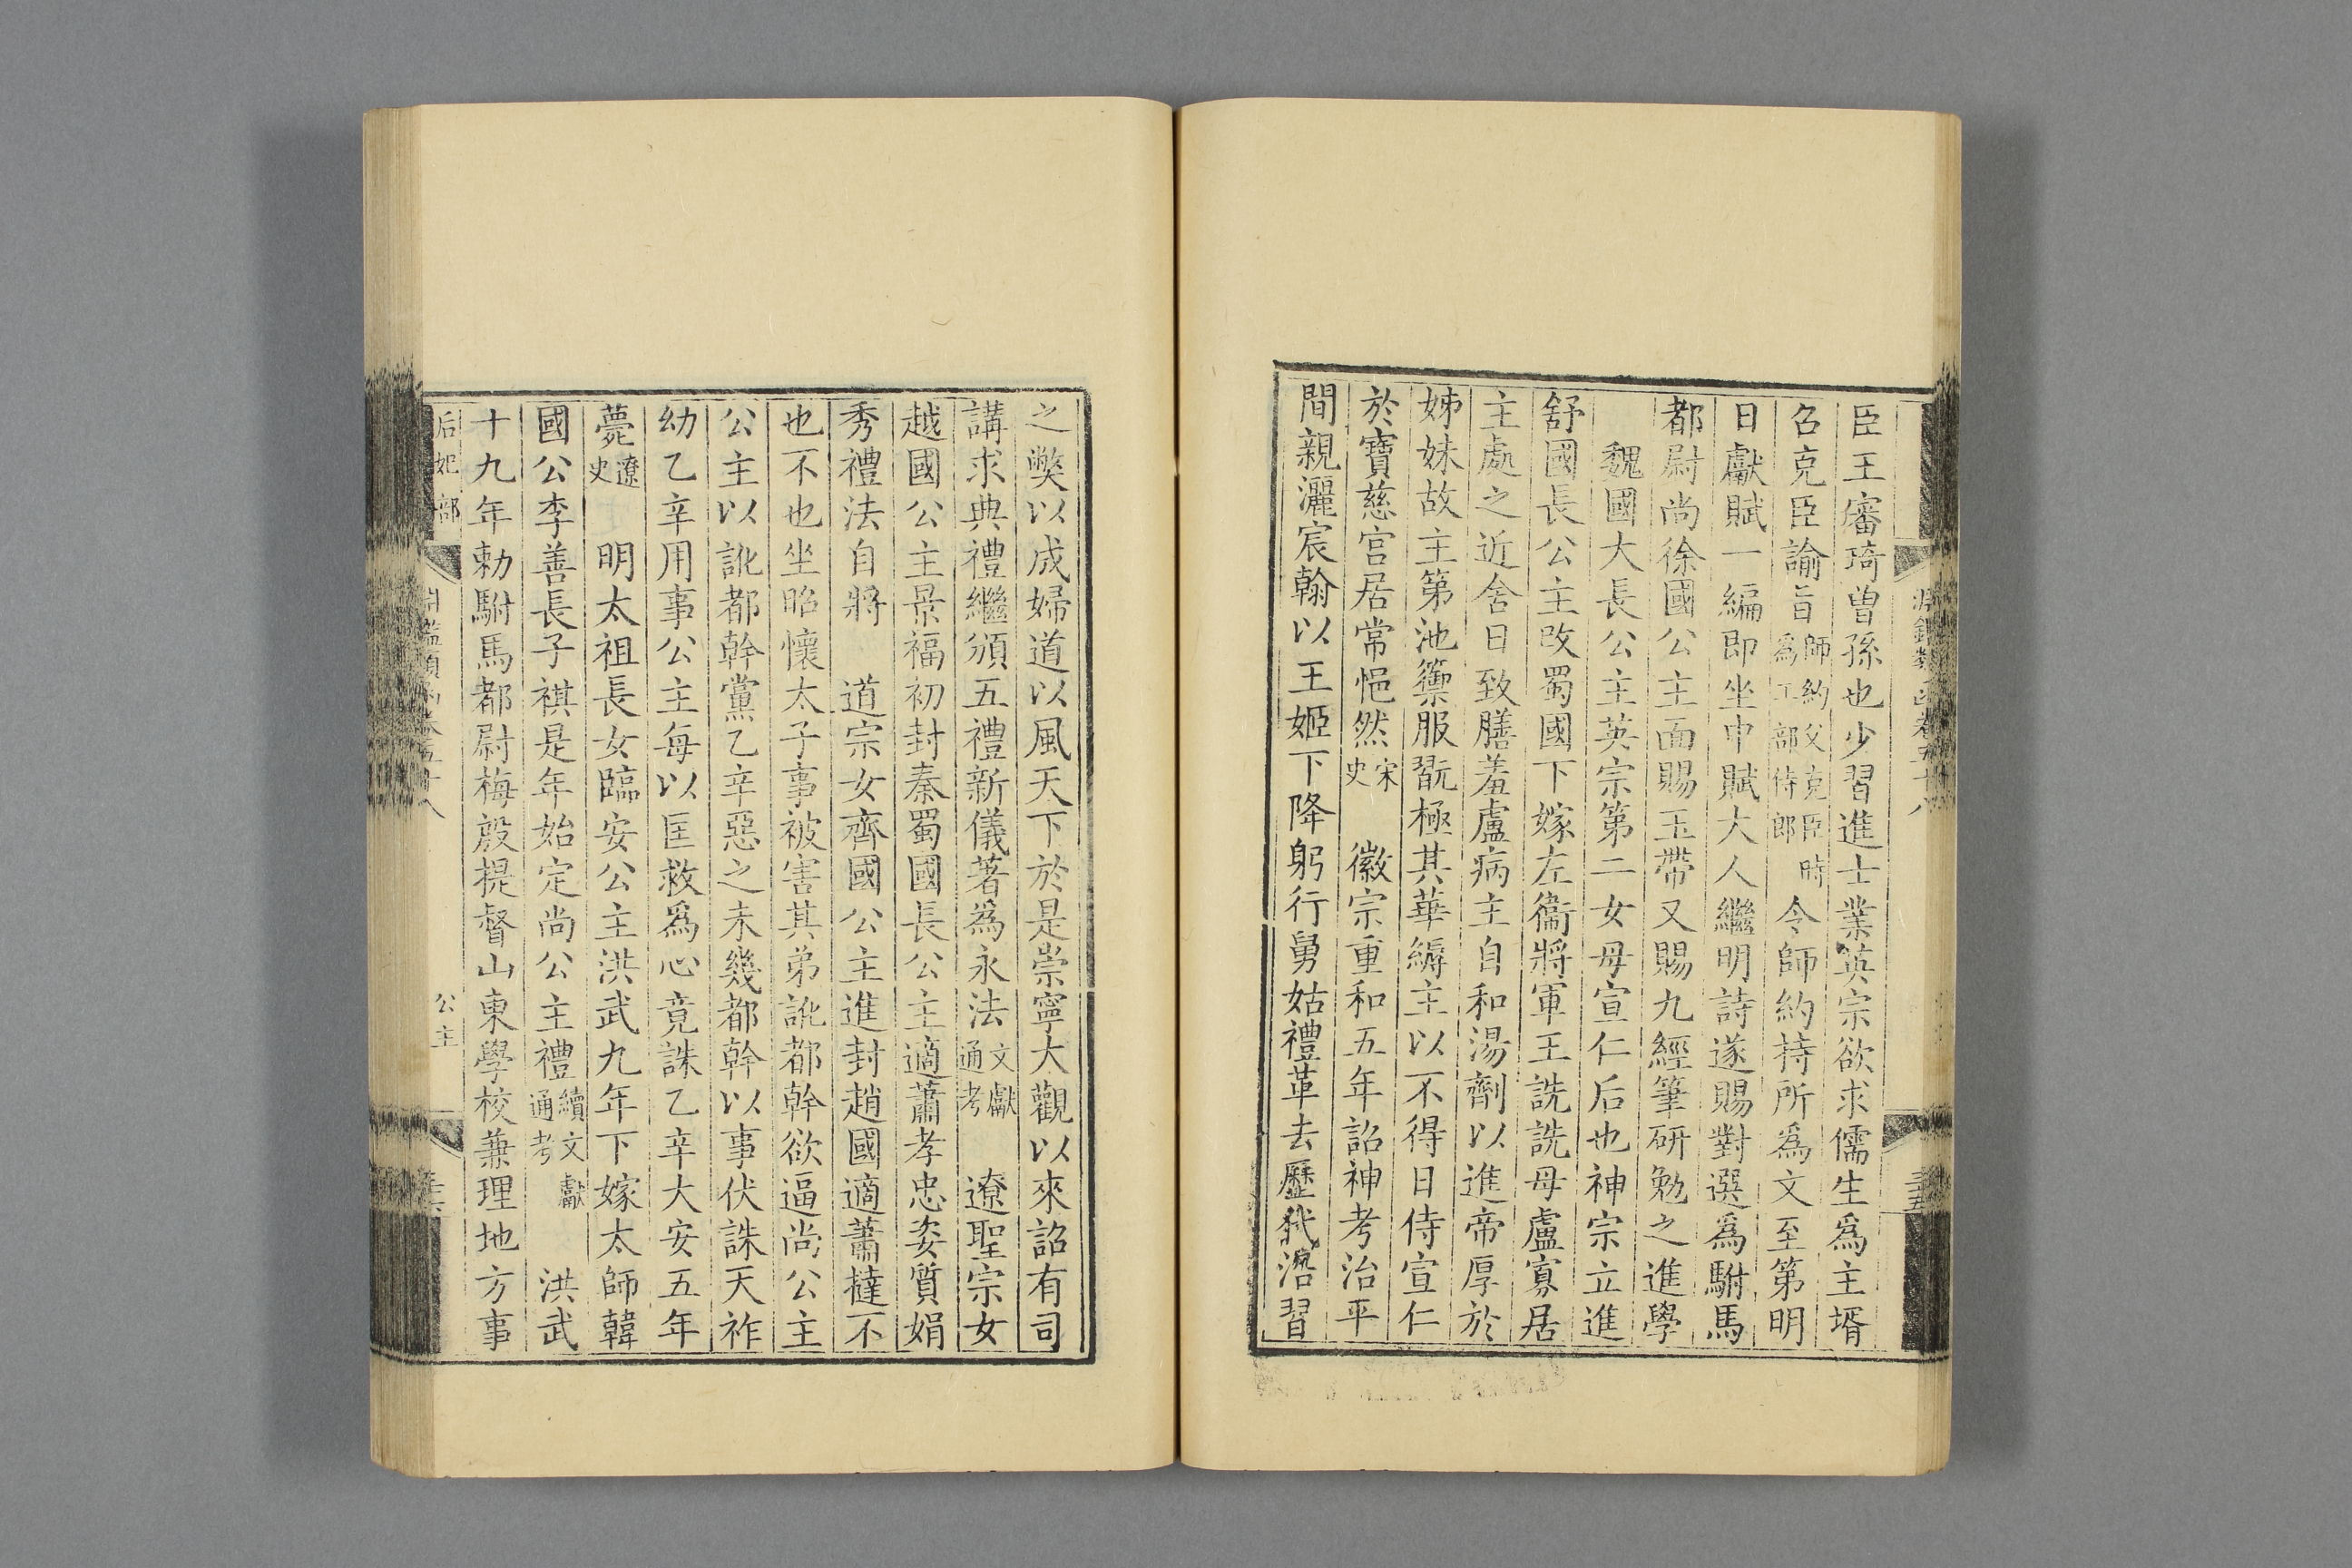 臣王審琦曽孫也少習進士業英宗欲求儒生爲主壻
召克臣諭旨師約父克臣時爲工部侍郎令師約持所爲文至第明
日獻賦一編即坐中賦大人繼明詩遂賜對選爲駙馬
都尉尚徐國公主面賜玉帶又賜九經筆研勉之進學
魏國大長公主英宗第二女母宣仁后也神宗立進
舒國長公主改蜀國下嫁左衞將軍王詵詵母盧寡居
主處之近舍日致膳羞盧病主自和湯劑以進帝厚於
姊妹故主第池籞服翫極其華縟主以不得日侍宣仁
於寶慈宫居常悒然宋史 徽宗重和五年詔神考治平
間親灑宸翰以王姬下降躬行舅姑禮革去歷代沿習
之獘以成婦道以風天下於是崇寧大觀以來詔有司
講求典禮繼頒五禮新儀著爲永法文獻通考 遼聖宗女
越國公主景福初封秦蜀國長公主適蕭孝忠姿質娟
秀禮法自將 道宗女齊國公主進封趙國適蕭撻不
也不也坐昭懷太子事被害其弟訛都斡欲逼尚公主
公主以訛都斡黨乙辛惡之未幾都斡以事伏誅天祚
幼乙辛用事公主每以匡救爲心竟誅乙辛大安五年
薨遼史 明太祖長女臨安公主洪武九年下嫁太師韓
國公李善長子祺是年始定尚公主禮續文獻通考 洪武
十九年勅駙馬都尉梅殷提督山東學校兼理地方事
后妃部 公主